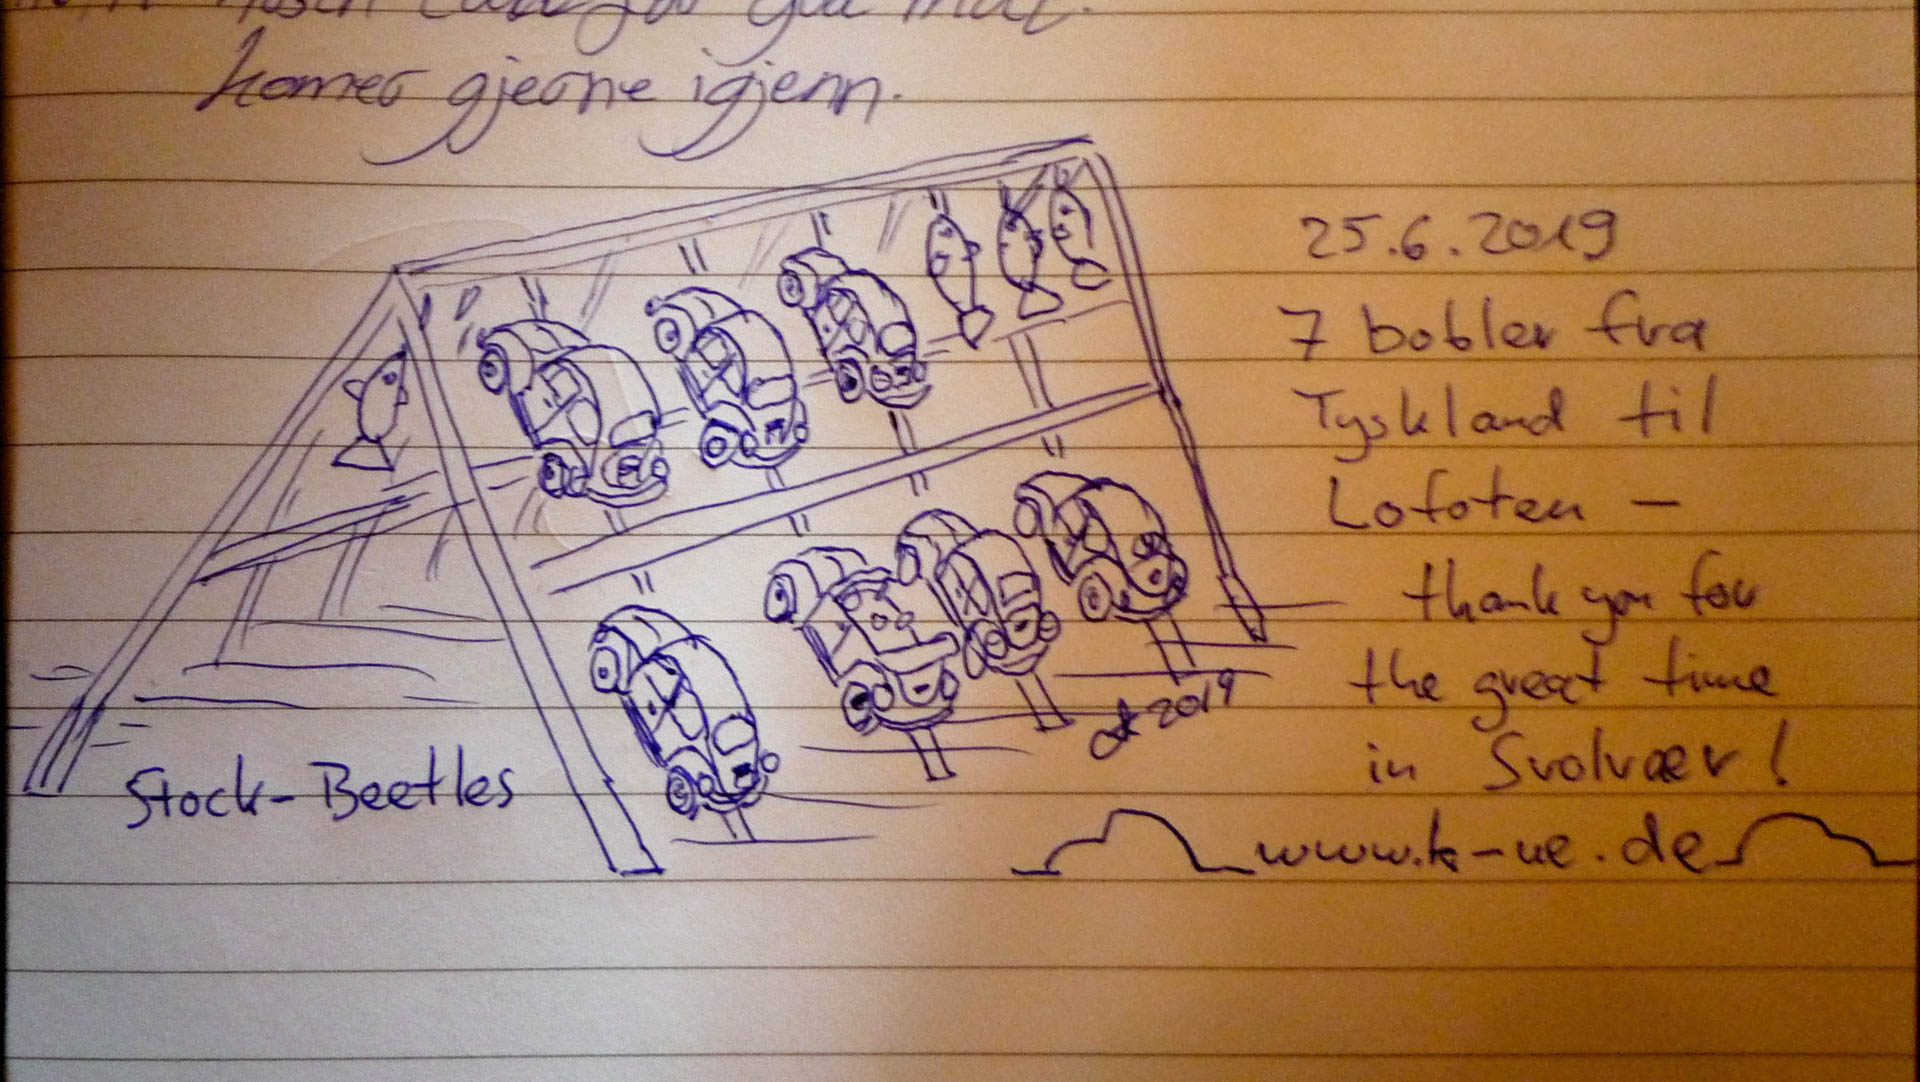 for god mat.
komer gjerne igjenn.
25.6.2019
7 bobler fra
Tyskland til
Lofoten –
thank you for
the great time
in Svolvær!
www.k-ue.de
2019
Stock-Beetles